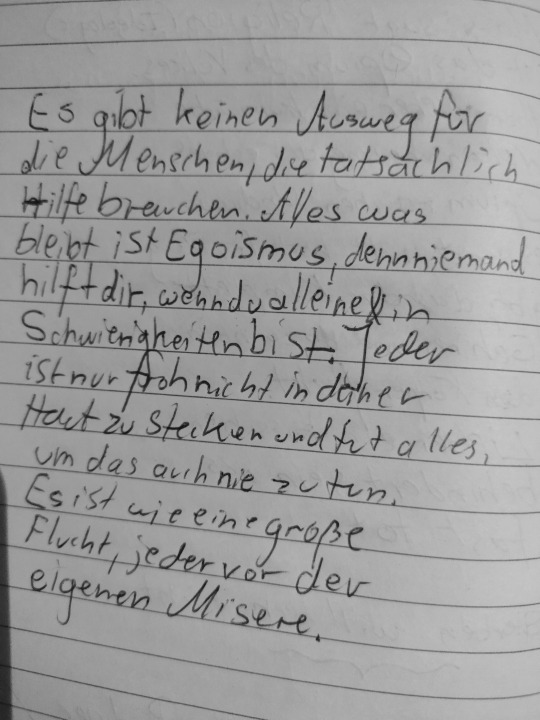 Es gibt keinen Ausweg für
die Menschen, die tatsächlich
Hilfe brauchen. Alles was
bleibt ist Egoismus, denn niemand
hilft dir, wenn du alleine in
Schwierigkeiten bist. Jeder
ist nur froh nicht in deiner
Haut zu stecken und tut alles,
um das auch nie zu tun.
Es ist wie eine große
Flucht, jeder vor der
eigenen Misere.